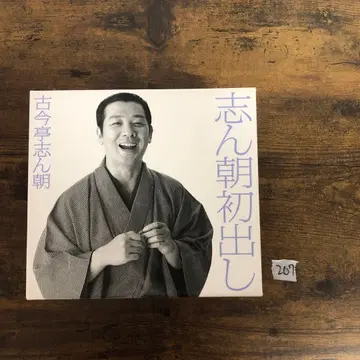 志ん朝初出し
古今亭志ん朝
207